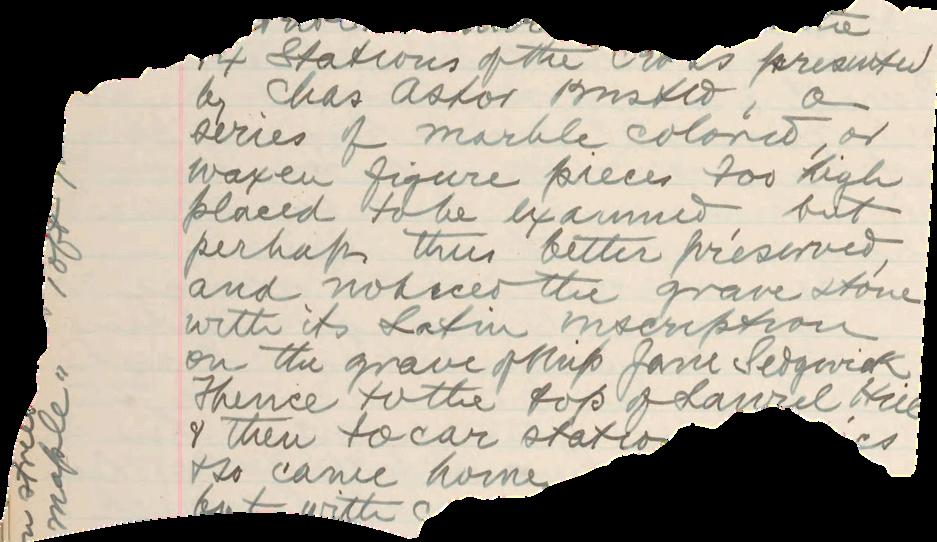 the
14 Stations of the Cross presented
by Chas Astor Bristed, a
series of marble colored, or
waxen figure pieces too high
placed to be examined but
perhaps thus better preserved,
and noticed the grave stone
with its Latin inscription
on the grave of Miss Jane Sedgwick
Thence to the top of Laurel Hill
& then to car statio
& so came home
but with
maple"